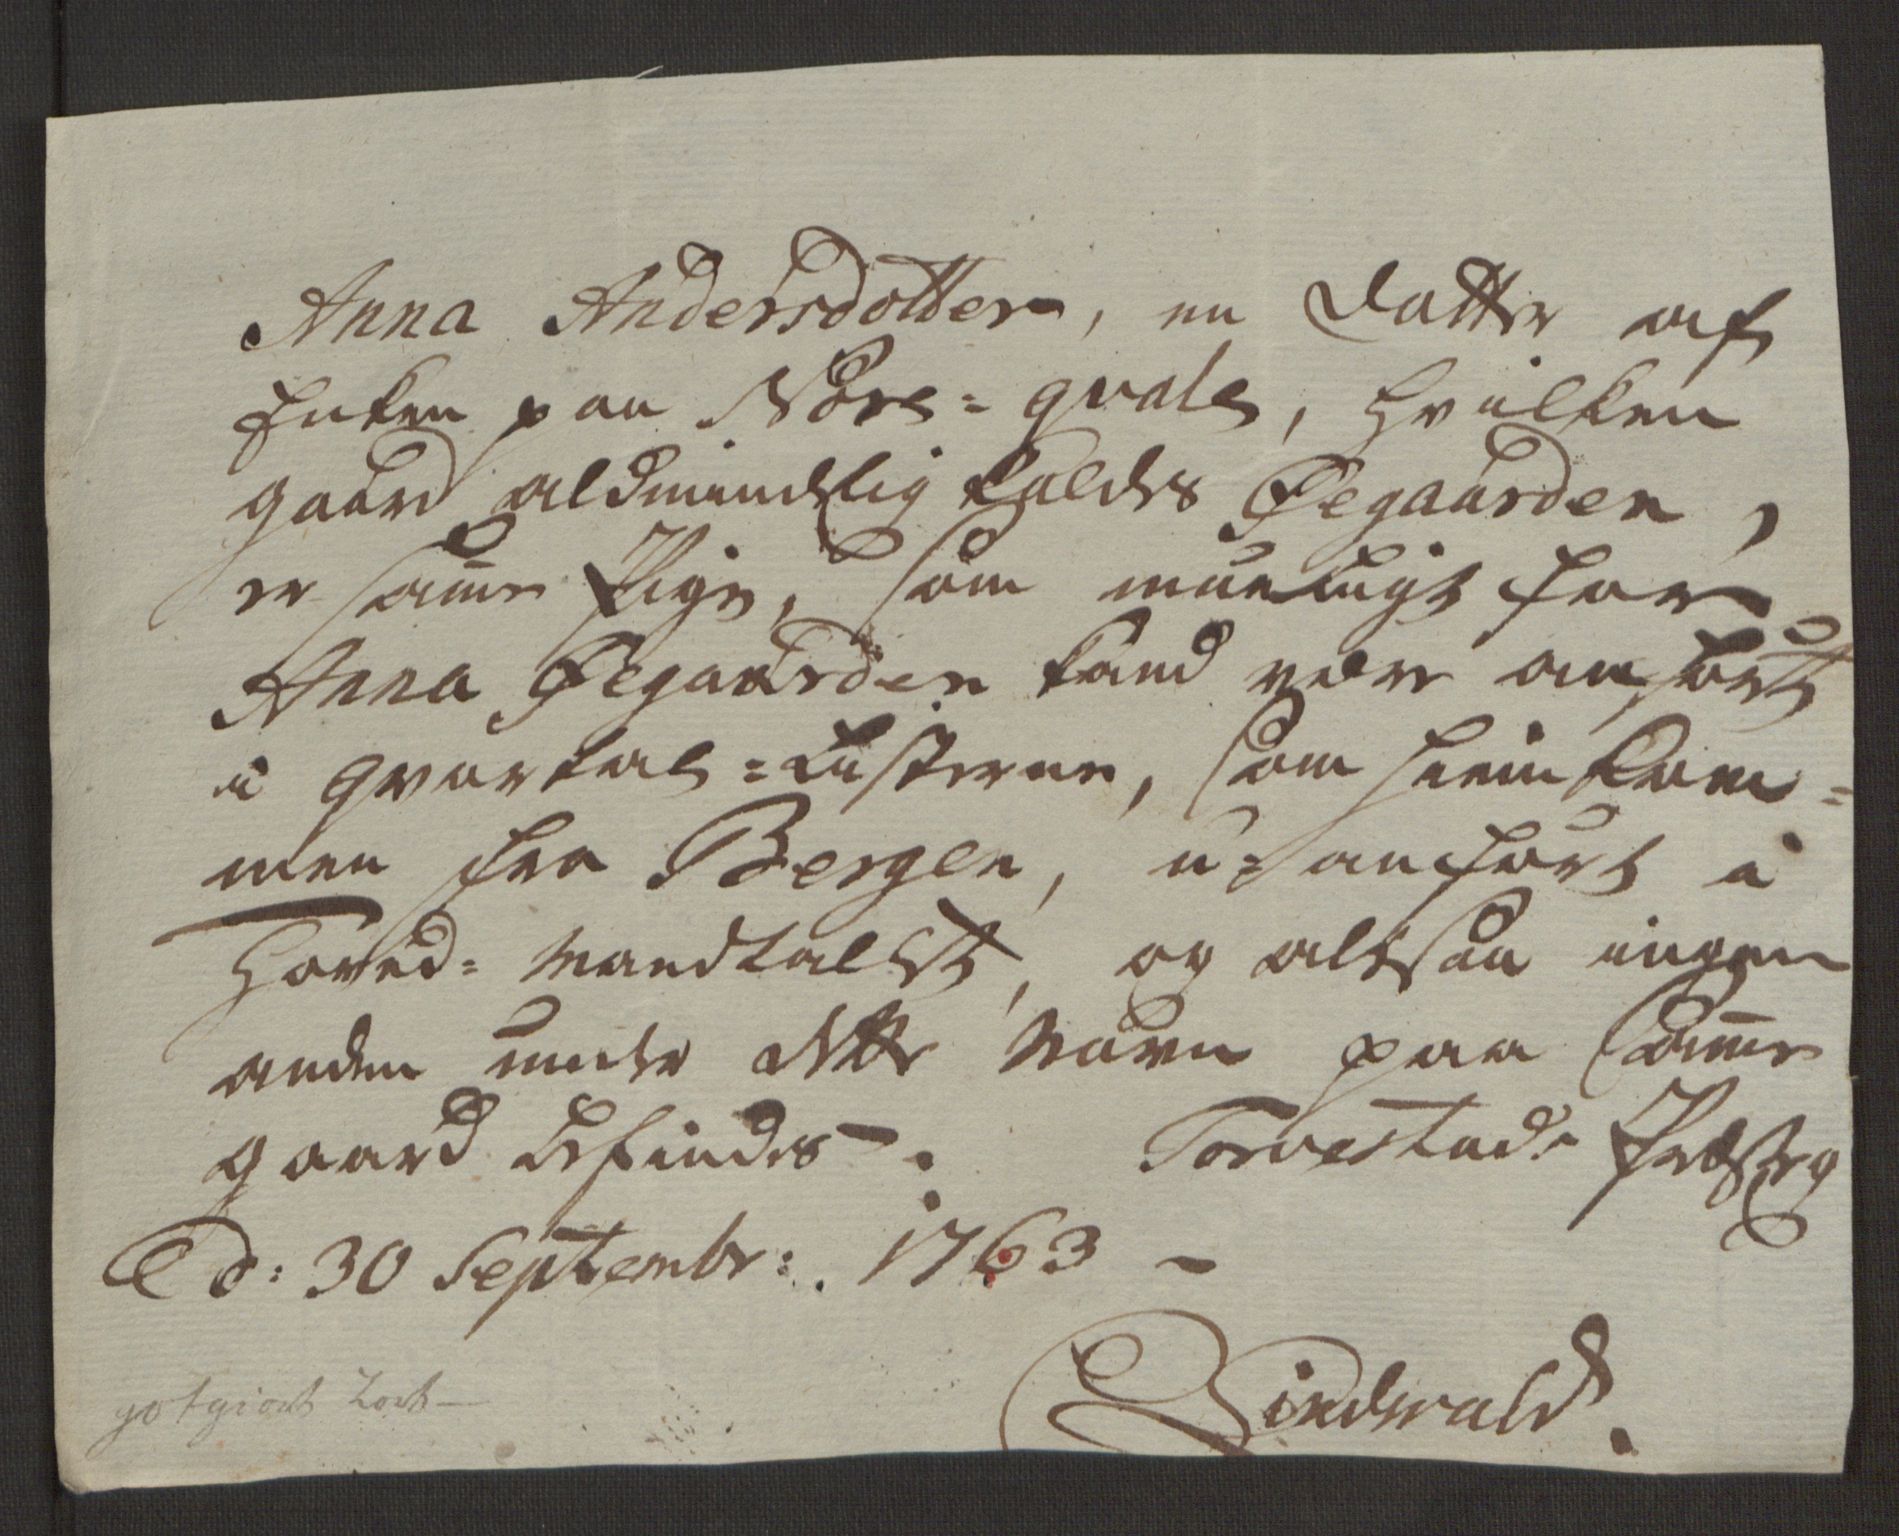 Anna Andersdotter, en Datter af
Enken paa Nöre=qvale, hvilken
gaard aldmindelig kaldes Øegaarden,
er samme Pige, som mueligt for
Anna Øegaarden kand være anført
i qvartal=Listerne, som heimkom=
men fra Bergen, u=anført i
Hoved=Mandtallet, og altsaa ingen
anden under dette Navn paa samme
gaard befindes. Torvestads Præsteg
Ed: 30 Septembr: 1763
Rindewald.
gotgiort